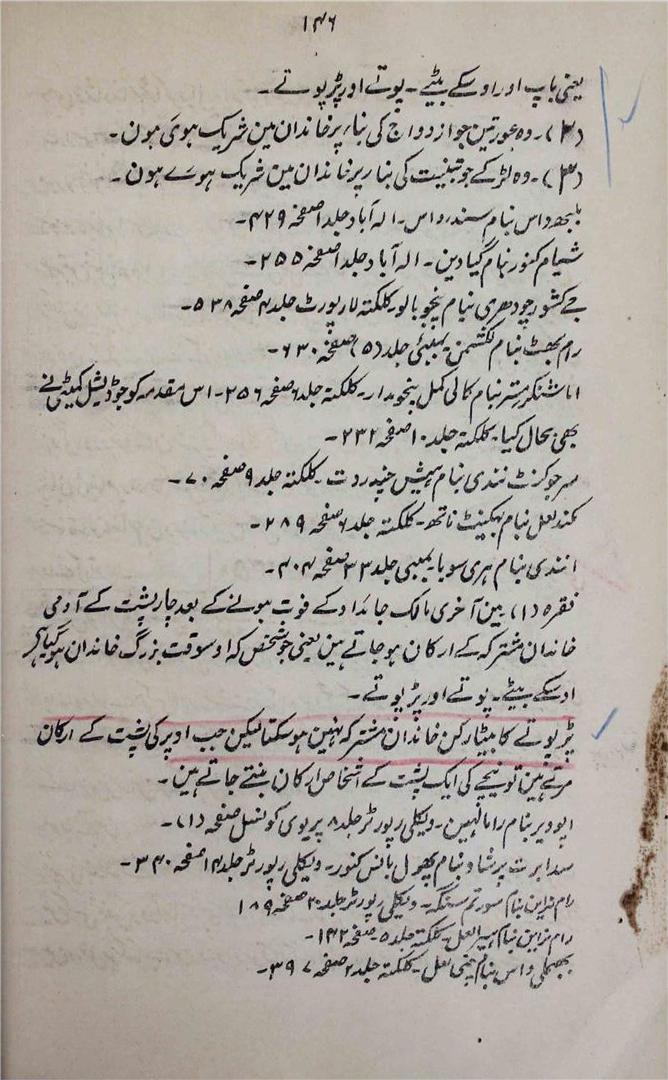 ۱۴۶
یعنی باپ اور اوسکے بیٹے۔ پوتے اور پڑپوتے۔
(۲)۔ وہ عورتین جو ازدواج کی بناء پر خاندان مین شریک ہوئ ہون۔
(۳)۔ وہ لڑکے جو تبنیت کی بنا پر خاندان مین شریک ہوے ہون۔
بلبھد داس بنام سندر داس۔ الہ آباد جلد ۱ صفحہ ۴۲۹۔
شیام کنور بنام گیا دین۔ الہ آباد جلد ۱ صفحہ ۲۵۵۔
جے کشور چودھری بنام پنچو بابو۔ کلکتہ لا رپورٹ جلد ۴ صفحہ ۵۳۸۔
رام بھٹ بنام لکشمن۔ بمبئی جلد (۵) صفحہ ۶۳۰۔
اما شنکر متر بنام کالی کمل نجومدار۔ کلکتہ جلد ۶ صفحہ ۲۵۶۔ اس مقدمہ کو جوڈیشل کمیٹی نے
بھی بحال کیا۔ کلکتہ جلد ۱۰ صفحہ ۲۳۲۔
سرجو کنٹ نندی بنام مہیش چندر دت۔ کلکتہ جلد ۹ صفحہ ۷۰۔
نند لعل بنام بیکنٹ ناتھ۔ کلکتہ جلد ۶ صفحہ ۲۸۹۔
انندی بنام ہری سوبا۔ بمبئی جلد ۳۳ صفحہ ۴۰۴۔
فقرہ (۱) مین آخری مالک جائداد کے فوت ہونے کے بعد چار پشت کے آدمی
خاندان مشترکہ کے ارکان ہو جاتے ہین یعنی جو شخص کہ اوسوقت بزرگ خاندان ہو گیا ہے
اوسکے بیٹے۔ پوتے اور پڑپوتے۔
پڑپوتے کا بیٹا رکن خاندان مشترکہ نہین ہو سکتا لیکن جب اوپر کی پشت کے ارکان
مرتے ہین تو نیچے کی ایک پشت کے اشخاص ارکان بنتے جاتے ہین۔
اپوویر بنام راما لہین۔ ویکلی رپورٹر جلد ۸ پریوی کونسل صفحہ (۱)۔
سدابرت پرشاد بنام پھول باس کنور۔ ویکلی رپورٹر جلد ۱۲ صفحہ ۳۴۰۔
رام نراین بنام سورتم سنگہ۔ ویکلی رپورٹر جلد ۲۰ صفحہ ۱۸۹
رام نراین بنام ہیرا لعل۔ کلکتہ جلد ۵۔ صفحہ ۱۴۲۔
بھمبلی داس بنام چنی لعل۔ کلکتہ جلد ۲ صفحہ ۳۹۷۔